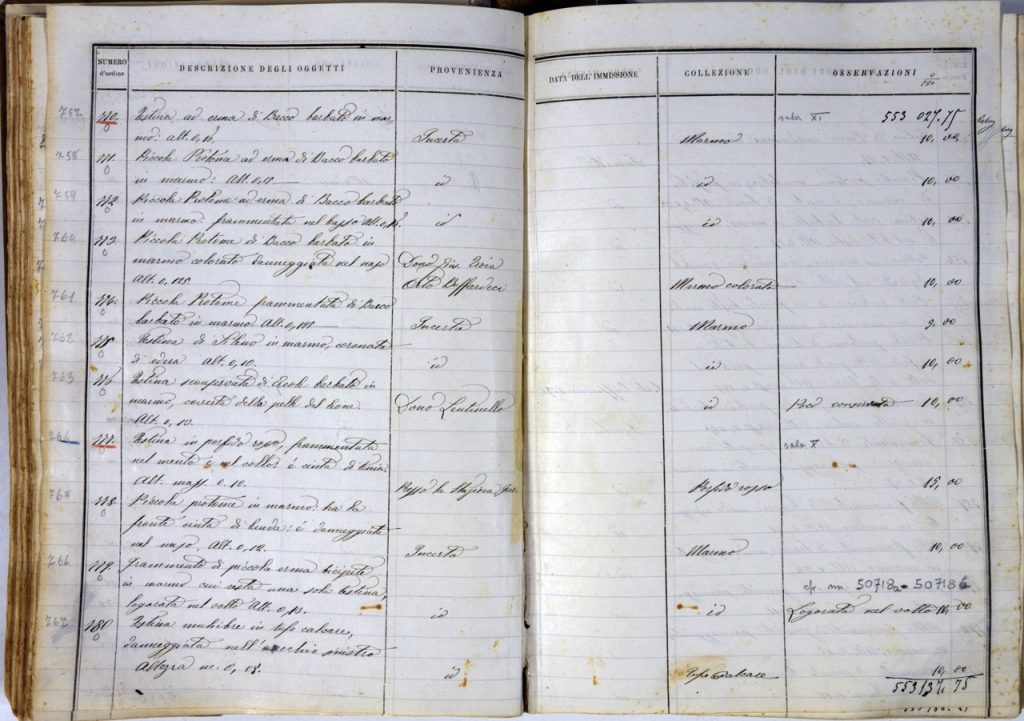 NUMERO d'ordine
DESCRIZIONE DEGLI OGGETTI
PROVENIENZA
DATA DELL'IMMISSIONE
COLLEZIONE
OSSERVAZIONI
sala XI 553 027,75
757 Testina ad erma di Bacco barbato in mar-
mo: alt. 0,13. Incerta Marmo 10,00
758 Piccola Protome ad erma di Bacco barbato
in marmo: Alt. 0,15 id id 10,00
759 Piccola Protome ad erma di Bacco barbato
in marmo: frammentata nel basso Alt. 0,13. id id 10,00
760 Piccola Protome di Bacco barbato in
marmo colorato danneggiata nel naso Dono
Alt. 0,125. Orto Marmo colorato 10,00
761 Piccola Protome frammentata di Bacco
barbato in marmo. Alt. 0,125 Incerta Marmo 9,00
762 Testina di in marmo, coronata
di edera Alt. 0,10. id id 10,00
763 Testina di barbato in
marmo, coverta della pelle del leone Dono Lentinello id Poco conservata 10,00
Alt. 0,10.
764 777. Testina in porfido rosso, frammentata sala X
nel mento e nel collo: é cinta di
Alt. mass. 0,10. Presso la Stazione Porfido rosso 15,00
765 778. Piccola protome in marmo: ha la
fronte cinta di benda: é danneggiata
nel naso, Alt. 0,12. Incerta Marmo 10,00
766 779. Frammento di piccola erma bicipite
in marmo cui resta una sola testina, cfr. nn. 50718 - 50718
logorata nel collo Alt. 0,13. id id Logorata nel volto 10,00
767 780 Testina muliebre in tufo calcare,
danneggiata nell'orecchio sinistro
Altezza m. 0,08. id Tufo calcare 10,00
553137,75